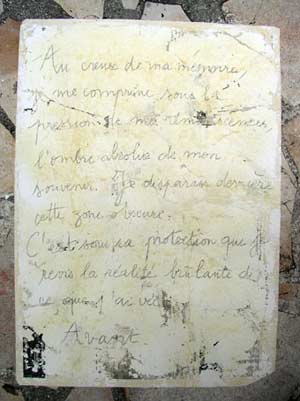 Au creux de ma mémoire,
je me comprime sous la
pression de mes réminiscences,
l'ombre absolue de mon
souvenir. Je disparais derrière
cette zone obscure.
C'est sous sa protection que je
revois la réalité brûlante de
ce que j'ai vécu
Avant